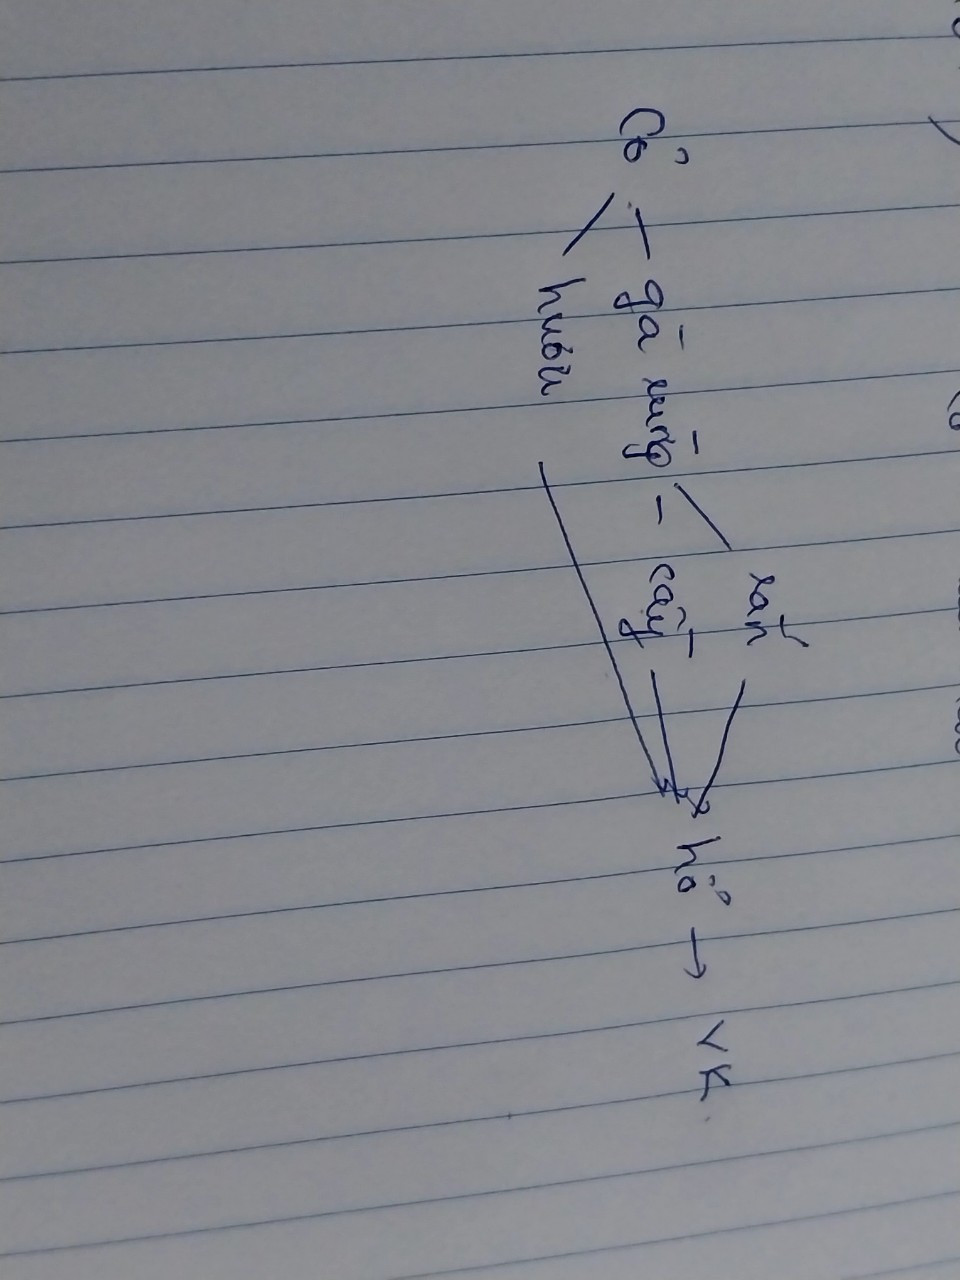 Cỏ
gà rừng
hươu
rắn
cầy
hổ → VK